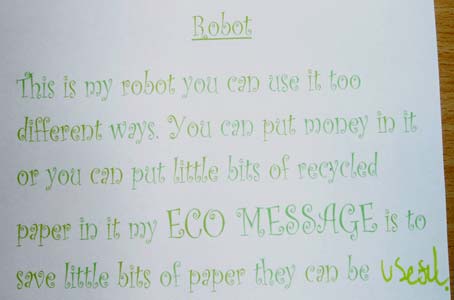 Robot
This is my robot you can use it too
different ways. You can put money in it
or you can put little bits of recycled
paper in it my ECO MESSAGE is to
save little bits of paper they can be useful.